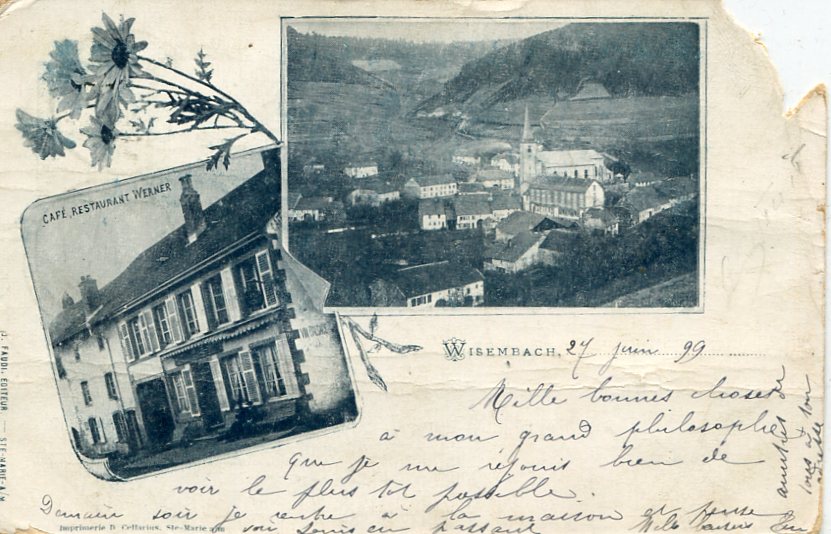 CAFÉ, RESTAURANT WERNER
WISEMBACH, 27 juin 99
Mille bonnes choses
à mon grand philosophe
que je me réjouis bien de
voir le plus tôt possible.
Demain soir je rentre à la maison et pense
voir Denis en passant Mille baisers
amitiés
tous
J. FAUDI, EDITEUR — STE-MARIE-A/M
Imprimerie D. Cellarius, Ste-Marie a/m